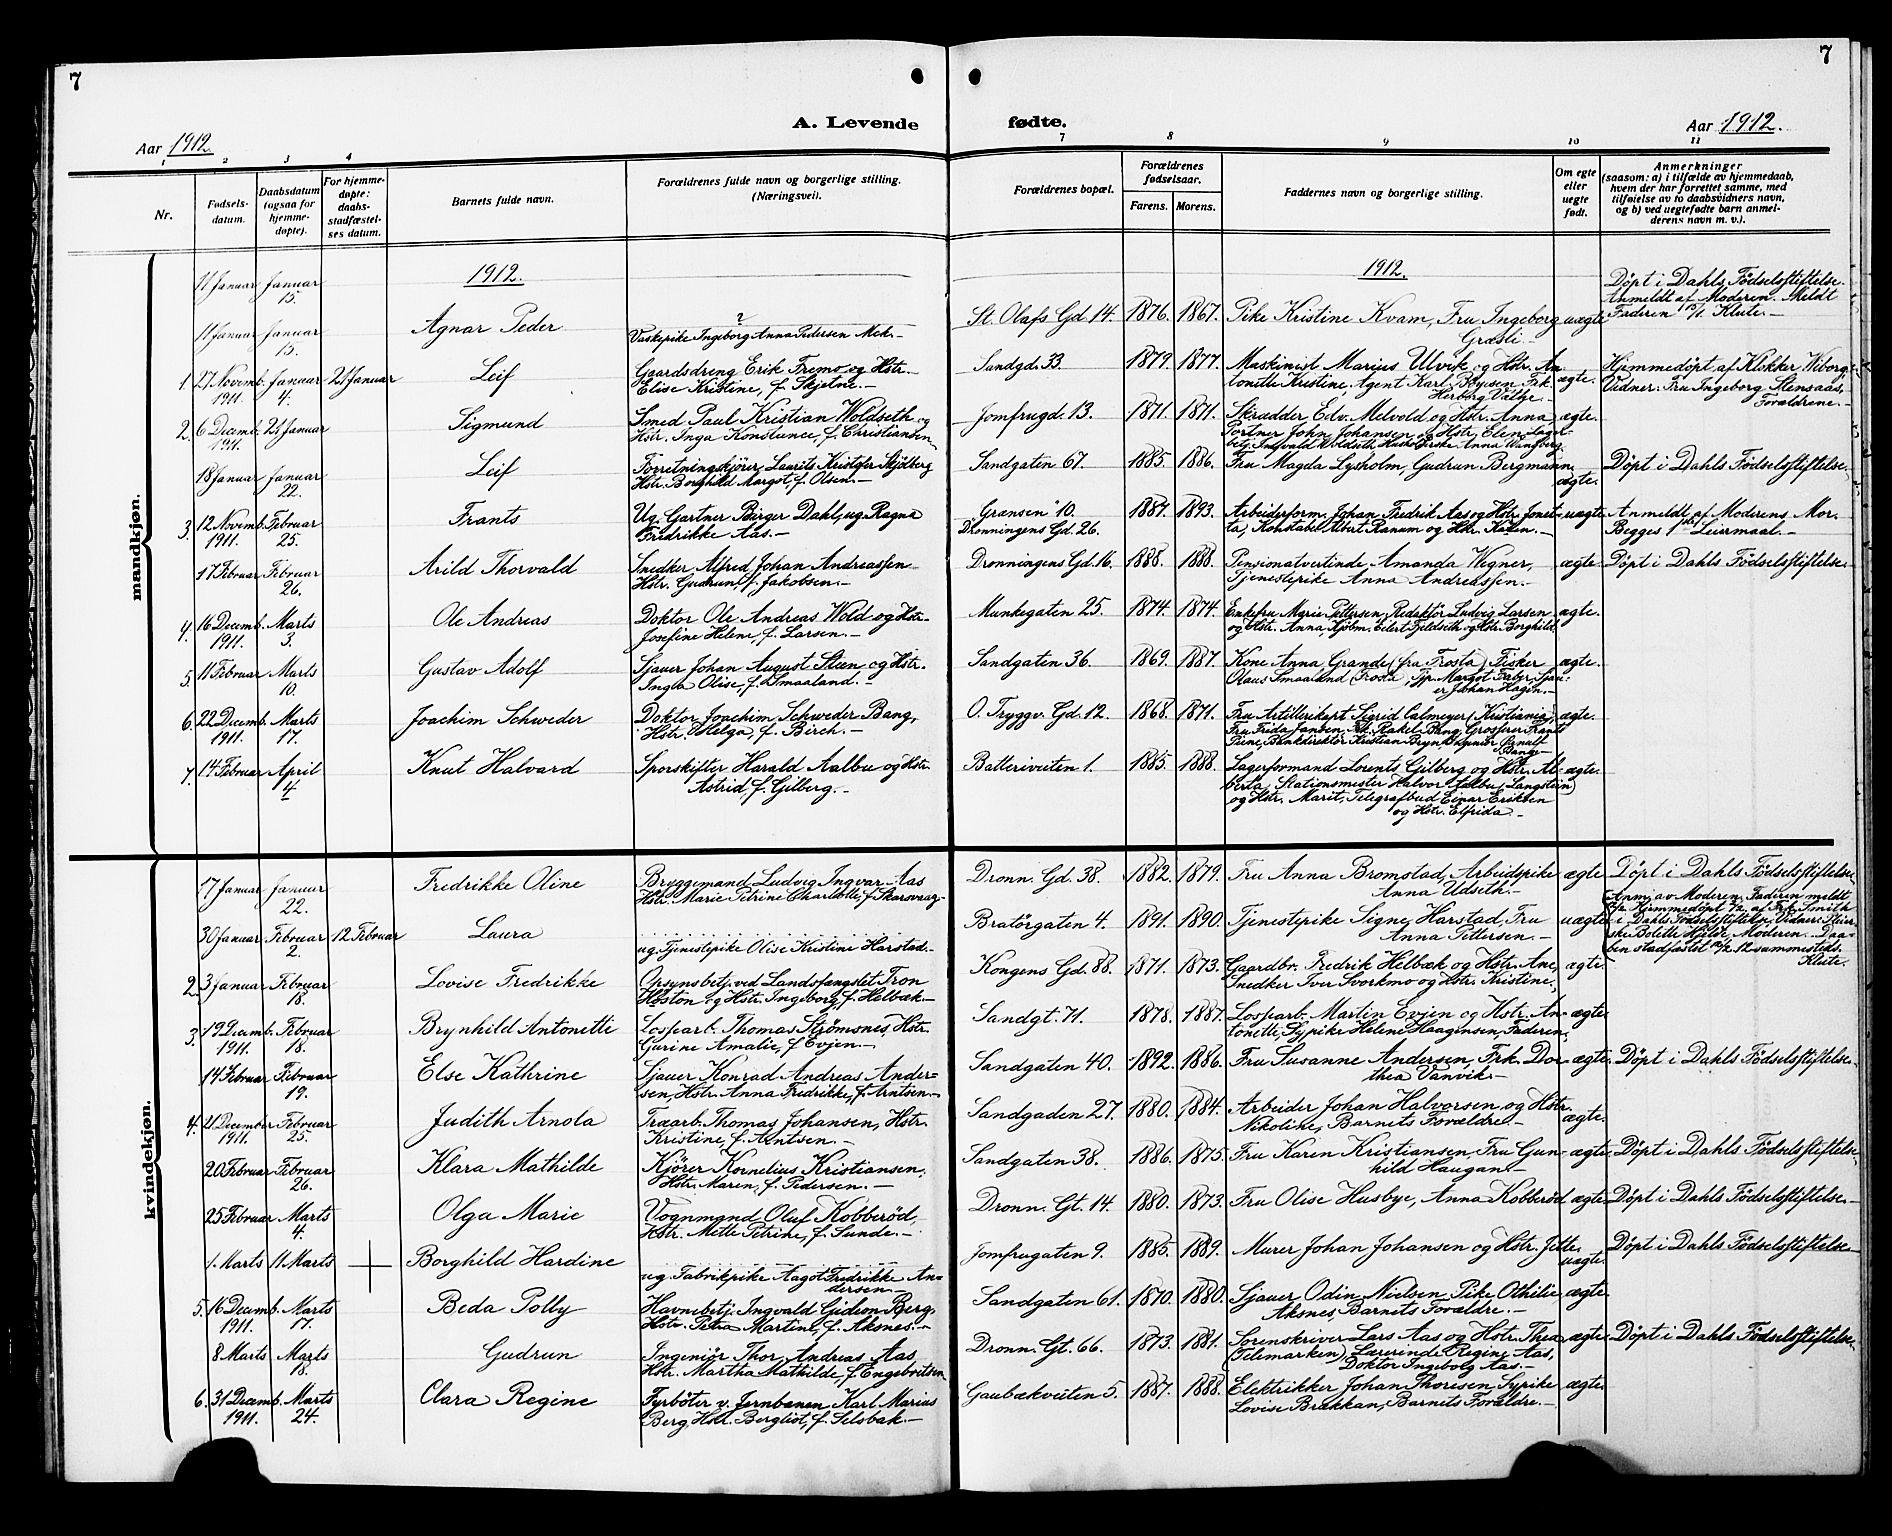 7
7
A. Levende
fødte.
Aar 1912.
Aar 1912.
1 2 3 4
7 8 9 10 11
Nr.
Fødsels-
datum.
Daabsdatum
(ogsaa for
hjemme-
døpte).
For hjemme-
døpte:
daabs-
stadfæstel-
ses datum.
Barnets fulde navn.
Forældrenes fulde navn og borgerlige stilling.
(Næringsvei).
Forældrenes bopæl.
Forældrenes
fødselsaar.
Farens. Morens.
Faddernes navn og borgerlige stilling.
Om egte
eller
uegte
født.
Anmerkninger
(saasom: a) i tilfælde av hjemmedaab,
hvem der har forrettet samme, med
tilføielse av to daabsvidners navn,
og b) ved uegtefødte barn anmel-
derens navn m. v.).
mandkjøn.
11 Januar Januar 15.
1912.
1912.
11 Januar Januar 15. Agnar Peder
?
Vaskepike Ingeborg Anna Pedersen Mek.
St. Olafs Gd 14. 1876. 1867. Pike Kristine Kvam, Fru Ingeborg
Græsli
uægte
Døpt i Dahls Fødselsstiftelse.
Anmeldt af Moderen. Meldt
Faderen Klute.
1. 27 Novemb. 1911. Januar 4. 21 Januar Leif
Gaardsdreng Erik Fremo og Hstr.
Elise Kristine, f. Skjetne.
Sandgd. 33. 1879. 1877. Maskinist Marius Ulvik og Hstr. An
tonette Kristine, Agent Karl Boysen Frk.
Herborg Valbye.
ægte.
Hjemmedøpt af Klokker Kiborg.
Vidner: Fru Ingeborg Stensaas,
Forældrene.
2. 6 Decemb. 1911. 21 Januar Sigmund
Smed Paul Kristian Woldseth og
Hstr. Inga Konstance, f. Christiansen
Jomfrugd. 13. 1871. 1871. Skrædder Edv. Melvold og Hstr. Anna
Portner John Johansen og Hstr. Eleve Lager-
betj. Ingvald Woldseth, Husholderske Anna Wansberg
ægte.
18 Januar Januar 22. Leif
Forretningskjører Laurits Kristofer Skjølberg
Hstr. Borghild Margot, f. Olsen.
Sandgaten 67. 1885. 1886. Fru Magda Lysholm, Gudrun Bergmann
ægte.
Døpt i Dahls Fødselsstiftelse.
3. 12 Novemb. 1911. Februar 25. Frants
Ug. Gartner Birger Dahl, ug. Ragna
Fredrikke Aas.
"Gransen" 10.
Dronningens Gd. 26.
1887. 1893. Arbeiderform. Johan Fredrik Aas og Hstr. Jonet-
ta, Konstabel Albert Ranum og Hstr. Karen.
uægte
Anmeldt af Moderens Mor.
Begges 1ste Leiermaal.
17 Februar Februar 26. Arild Thorvald
Snedker Alfred Johan Andreassen
Hstr. Gudrun, f. Jakobsen.
Dronningens Gd. 16. 1888. 1888. Pensionatvertinde Amanda Wigner,
Tjenestepike Anna Andreassen.
ægte
Døpt i Dahls Fødselsstiftelse.
4. 16 Decemb. 1911. Marts 3. Ole Andreas
Doktor Ole Andreas Wold og Hstr.
Josefine Helene, f. Larsen.
Munkegaten 25. 1874. 1874. Enkefru Marie Pettersen, Redaktør Ludvig Larsen
og Hstr. Anna, Kjøbm. Eilert Fjeldseth og Hstr. Borghild.
ægte.
5. 11 Februar Marts 10. Gustav Adolf
Sjauer Johan August Steen og Hstr.
Inga Olise, f. Smaaland.
Sandgaten 36. 1869. 1887. Kone Anna Grande (fra Frosta) Fisker
Olaus Smaaland (Frosta), Margot Faber, Sjau-
er Johan Hagen.
ægte.
6. 22 Decemb. 1911. Marts 17. Joachim Schweder
Doktor Joachim Schweder Bang,
Hstr. Helga, f. Birch.
O. Tryggv. Gd. 12. 1868. 1871. Fru Artillerikapt. Sigrid Calmeyer (Kristiania),
Fru Frida Jansen, Frk. Rakel Bang, Grosserer Frants
Piene, Bankdirektør Kristian Bryn,
Bang.
ægte.
7. 14 Februar April 4. Knut Halvard
Sporskifter Harald Aalbu og Hstr.
Astrid, f. Gilberg.
Batteriveiten 1. 1885. 1888. Lagerformand Lorents Gilberg og Hstr. Al-
berta, Stationsmester Halvor Aalbu (Langstein)
og Hstr. Marit, Telegrafbud Einar Eriksen
og Hstr. Elfrida.
ægte.
kvindekjøn.
17 Januar Januar 22. Fredrikke Oline
Bryggemand Ludvig Ingvar Aas
Hstr. Marie Petrine Charlotte, f. Skarsvaag
Dronn. Gd. 38. 1882. 1879. Fru Anna Bromstad, Arbeidspike
Anna Udseth.
ægte
Døpt i Dahls Fødselsstiftelse.
30 Januar Februar 2. 12 Februar Laura
ug. Tjenestepike Olise Kristine Harstad.
Bratørgaten 4. 1891. 1890. Tjenestepike Signe Harstad, Fru
Anna Pettersen.
uægte
Anm. av Moderen. Faderen meldt
Hjemmedøpt 2/2 af Frk. Smith
i Dahls Fødselsstiftelse. Vidner: Pleier-
ske Bolette Hjelde, Moderen. Daa-
ben stadfæstet 12/2 12 sammesteds.
Klute.
2. 3 Januar Februar 18. Lovise Fredrikke
Opsynsbetj. ved Landsfængslet Tron
Hoston og Hstr. Ingeborg, f. Helbæk.
Kongens Gd. 88. 1871. 1873. Gaardbr. Fredrik Helbæk og Hstr. Ane,
Snedker Iver Svorkmo og Hstr. Kristine,
ægte.
3. 19 Decemb. 1911. Februar 18. Brynhild Antonette
Lossearb. Thomas Strømsnes, Hstr.
Gurine Amalie, f. Evjen.
Sandgt. 71. 1878. 1887. Lossearb. Martin Evjen og Hstr. An-
tonette, Sypike Helene Haagensen, Faderen.
ægte.
14 Februar Februar 19. Else Kathrine
Sjauer Konrad Andreas Ander-
sen, Hstr. Anna Fredrikke, f. Arntsen.
Sandgaten 40. 1892. 1886. Fru Susanne Andersen, Frk. Dor-
thea Vanvik.
ægte.
Døpt i Dahls Fødselsstiftelse.
4. 21 December 1911. Februar 25. Judith Arnola
Træarb. Thomas Johansen, Hstr.
Kristine, f. Arntsen.
Sandgaden 27. 1880. 1884. Arbeider Johan Halvorsen og Hstr.
Nikoline, Barnets Forældre.
ægte.
20 Februar Februar 26. Klara Mathilde
Kjører Kornelius Kristiansen,
Hstr. Maren, f. Pedersen.
Sandgaten 38. 1886. 1875. Fru Karen Kristiansen, Fru Gun-
hild Haugan.
ægte.
Døpt i Dahls Fødselsstiftelse.
25 Februar Marts 4. Olga Marie
Vognmand Oluf Kobberød,
Hstr. Mette Petrine, f. Sunde.
Dronn. Gt. 14. 1880. 1873. Fru Olise Husbye, Anna Kobberød
ægte
Døpt i Dahls Fødselsstiftelse.
1. Marts 11 Marts + Borghild Hardine
ug. Fabrikpike Aagot Fredrikke An-
dersen.
Jomfrugaten 9. 1885. 1889. Murer Johan Johansen og Hstr. Jette.
uægte.
Døpt i Dahls Fødselsstiftelse
5. 16 Decemb. 1911. Marts 17. Beda Polly
Havnebetj. Ingvald Gideon Berg.
Hstr. Petra Martine, f. Aksnes.
Sandgaten 61. 1870. 1880. Sjauer Odin Nielsen, Pike Othilie
Aksnes, Barnets Forældre.
ægte.
8 Marts Marts 18. Gudrun
Ingeniør Thor Andreas Aas
Hstr. Martha Mathilde, f. Engebretsen
Dronn. Gt. 66. 1873. 1881. Sorenskriver Lars Aas og Hstr. Thea
(Telemarken), Lærerinde Regine Aas,
Doktor Ingeborg Aas.
ægte.
Døpt i Dahls Fødselsstiftelse.
6. 31 Decemb. 1911. Marts 24. Clara Regine
Fyrbøter v. Jernbanen Karl Marius
Berg, Hstr. Bergliot, f. Selsbak.
Gaubækveiten 5. 1887. 1888. Elektrikker Johan Thoresen, Sypike
Lovise Brækkan, Barnets Forældre.
ægte.